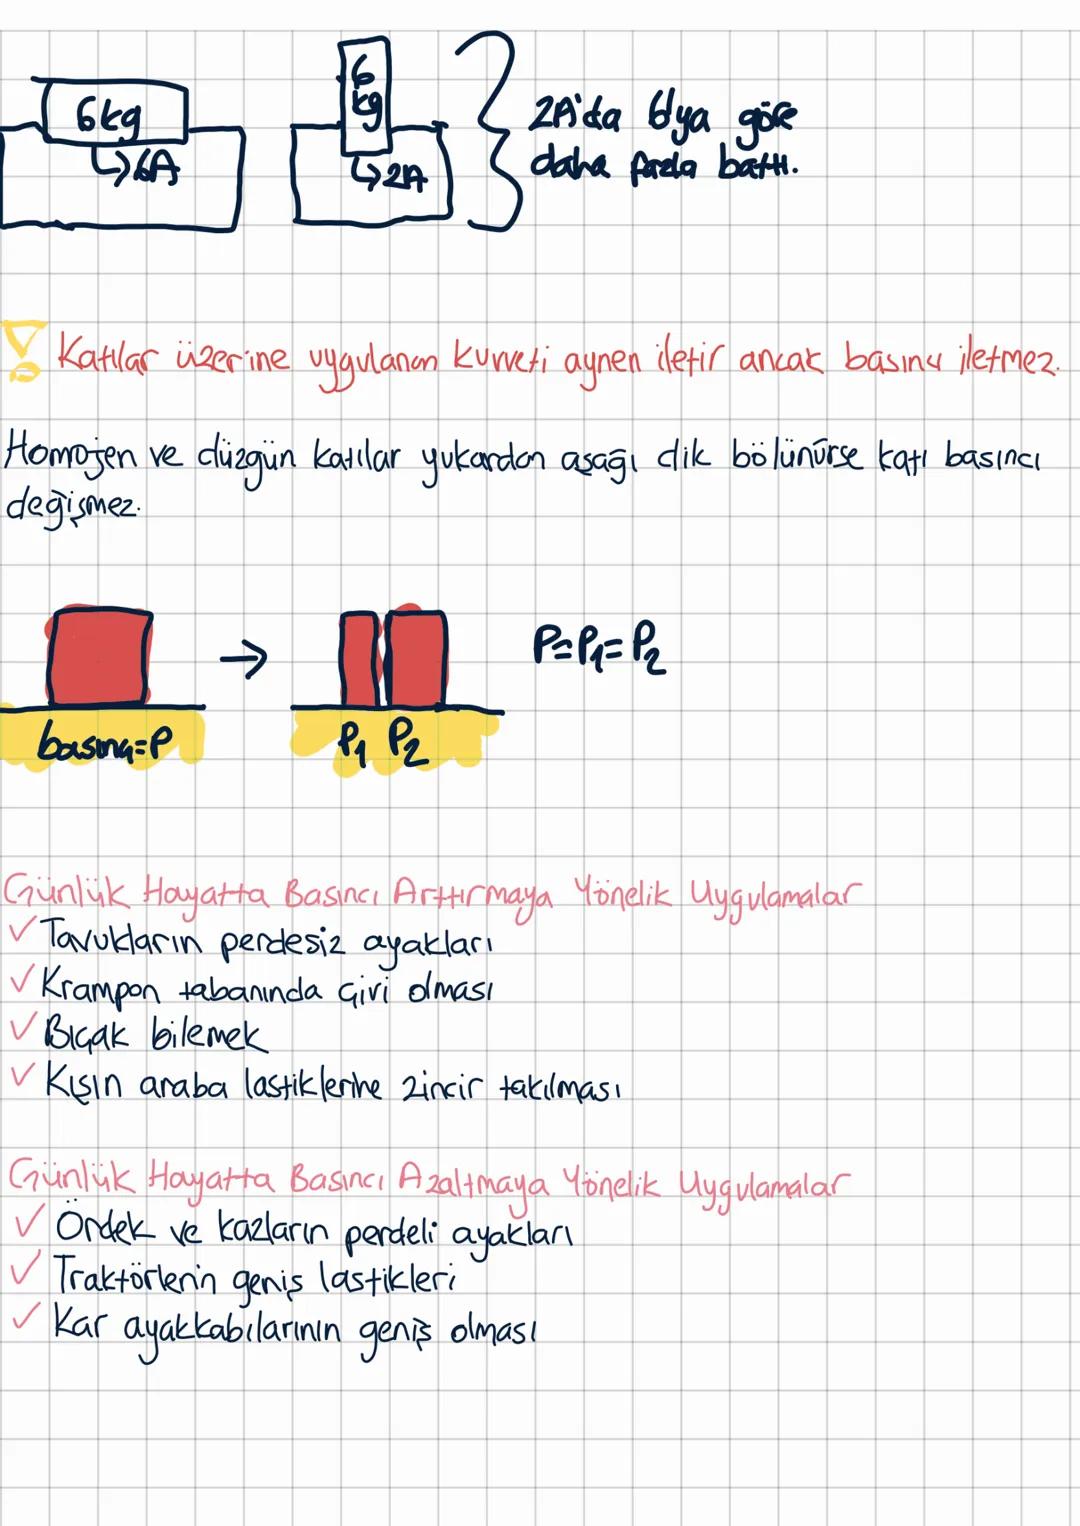 6kg
6
kg
↳6A
↳2A
2A'da 6'ya göre
daha fazla battı.
! Katılar üzerine uygulanan kuvveti aynen iletir ancak basıncı iletmez.
Homojen ve düzgün katılar yukardan aşağı dik bölünürse katı basıncı
değişmez.
→
P=P₁=P₂
basınç=P
P₁ P₂
Günlük Hayatta Basıncı Arttırmaya Yönelik Uygulamalar
✓ Tavukların perdesiz ayakları
✓ Krampon tabanında çivi olması
✓ Bıçak bilemek
✓ Kışın araba lastiklerine zincir takılması
Günlük Hayatta Basıncı Azaltmaya Yönelik Uygulamalar
✓ Ördek ve kazların perdeli ayakları
✓ Traktörlerin geniş lastikleri
✓ Kar ayakkabılarının geniş olması